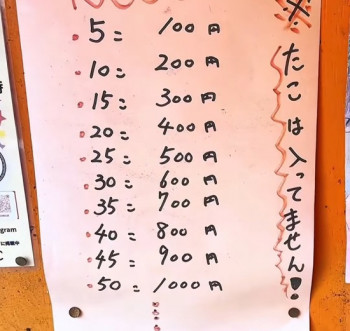 ※たこは入ってません!
5コ 100円
10コ 200円
15コ 300円
20コ 400円
25コ 500円
30コ 600円
35コ 700円
40コ 800円
45コ 900円
50コ 1000円
gram